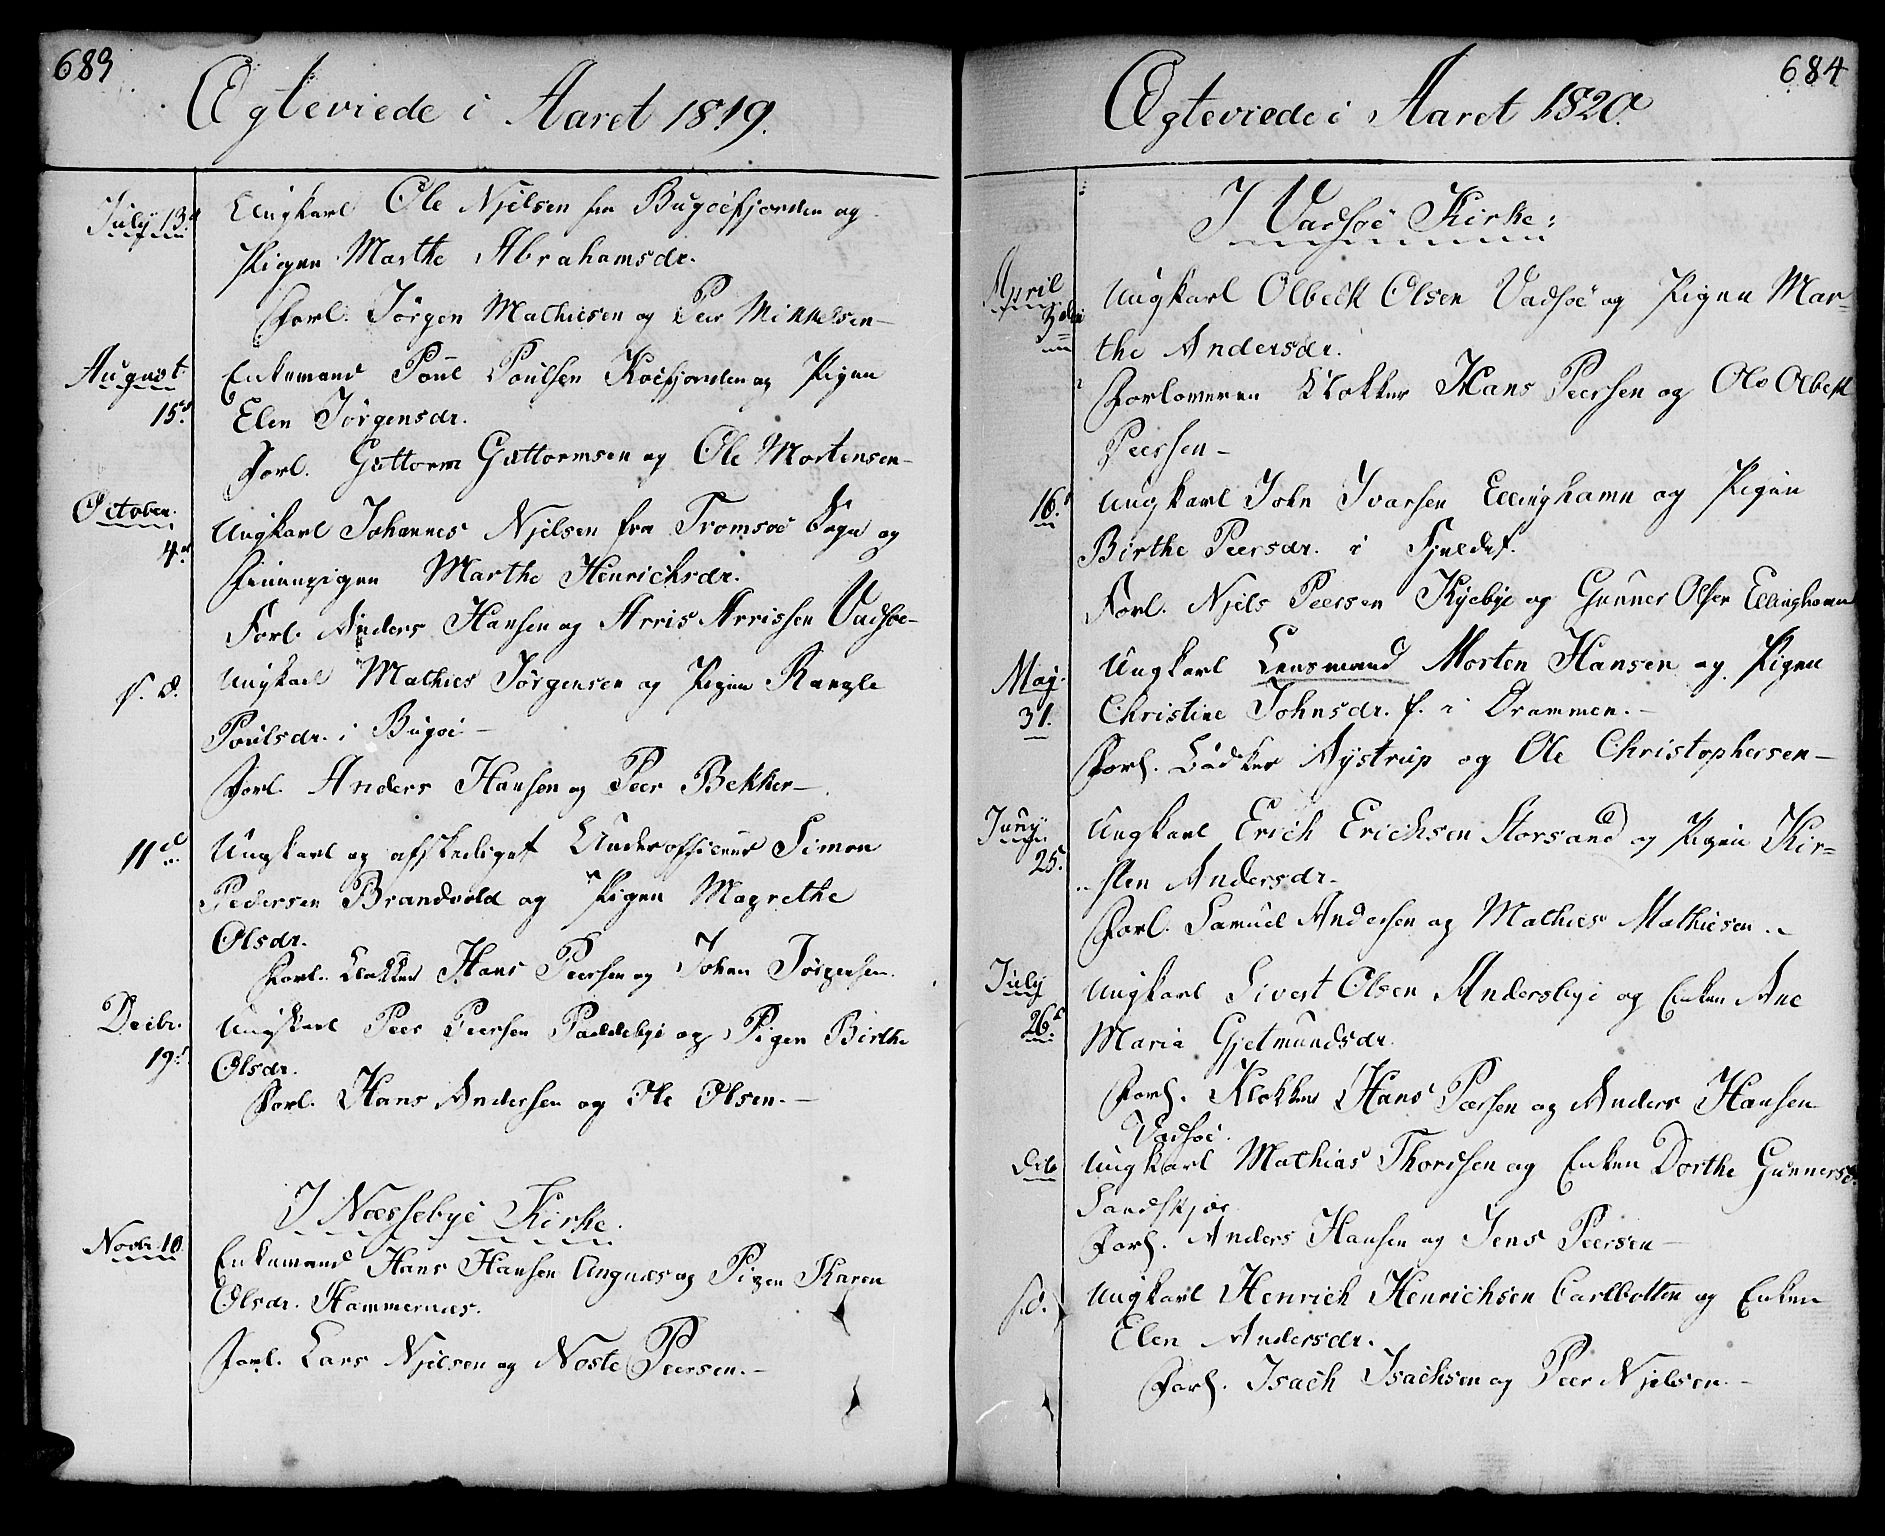 683
Ægteviede i Aaret 1819.
July 13.d Ungkarl Ole Njelsen fra Bugöefjorden og
Pigen Marthe Abrahamsdr.
Forl. Jörgen Mathiesen og Peer Mikkelsen
August 15.d Enkemand Poul Poulsen Koefjorden og Pigen
Elen Jörgensdr.
Forl. Guttorm Guttormsen og Ole Mortensen
October 4.d Ungkarl Johannes Njelsen fra Tromsöe Sogn og
Finnepigen Marthe Henrichsdr.
Forl. Anders Hansen og Arris Arrissen Vadsöe
s. d. Ungkarl Mathies Jörgensen og Pigen Rangle
Poulsdr. i Bugöe
Forl. Anders Hansen og Peer Bekker
11.d Ungkarl og afskediget Underofficeer Simon
Pedersen Brandvold og Pigen Magrethe
Olsdr.
Forl. Klokker Hans Peersen og Johan Jörgensen.
Decbr. 19.d Ungkarl Peer Peersen Paddebye og Pigen Birthe
Olsdr.
Forl. Hans Andersen og Ole Olsen.
I Næssebye Kirke.
Novbr. 10. Enkemand Hans Hansen Angnæs og Pigen Karen
Olsdr. Hammernæs.
Forl. Lars Njelsen og Noste Peersen.
684
Ægteviede i Aaret 1820.
I Vadsöe Kirke:
April 3die Ungkarl Olbelk Olsen Vadsöe og Pigen Mar-
the Andersdr.
Forloverne Klokker Hans Peersen og Ole Olbelk
Peersen
16.d Ungkarl John Ivarsen Ellinghamn og Pigen
Birthe Peersdr. i Fjeldef.
Forl. Njels Peersen Kyebye og Gunner Olsen Ellinghamn
Maj. 31. Ungkarl Lensmand Morten Hansen og Pigen
Christine Johnsdr. f. i Drammen.
Forl. Lödker Nystrup og Ole Christophersen
Juny 25. Ungkarl Erich Erichsen Storsand og Pigen Kir-
sten Andersdr.
Forl. Samuel Andersen og Mathies Mathiesen.
July 26.d Ungkarl Sivert Olsen Andersbye og Enken Ane
Maria Gjetmundsdr.
Forl. Klokker Hans Peersen og Anders Hansen
Vadsöe.
dito Ungkarl Mathias Thordsen og Enken Dorthe Gunnersd.
Sandskjör
Forl. Anders Hansen og Jens Peersen
s. d. Ungkarl Henrich Henrichsen Carlbotten og Enken
Elen Andersdr.
Forl. Isach Isachsen og Peer Njelsen.